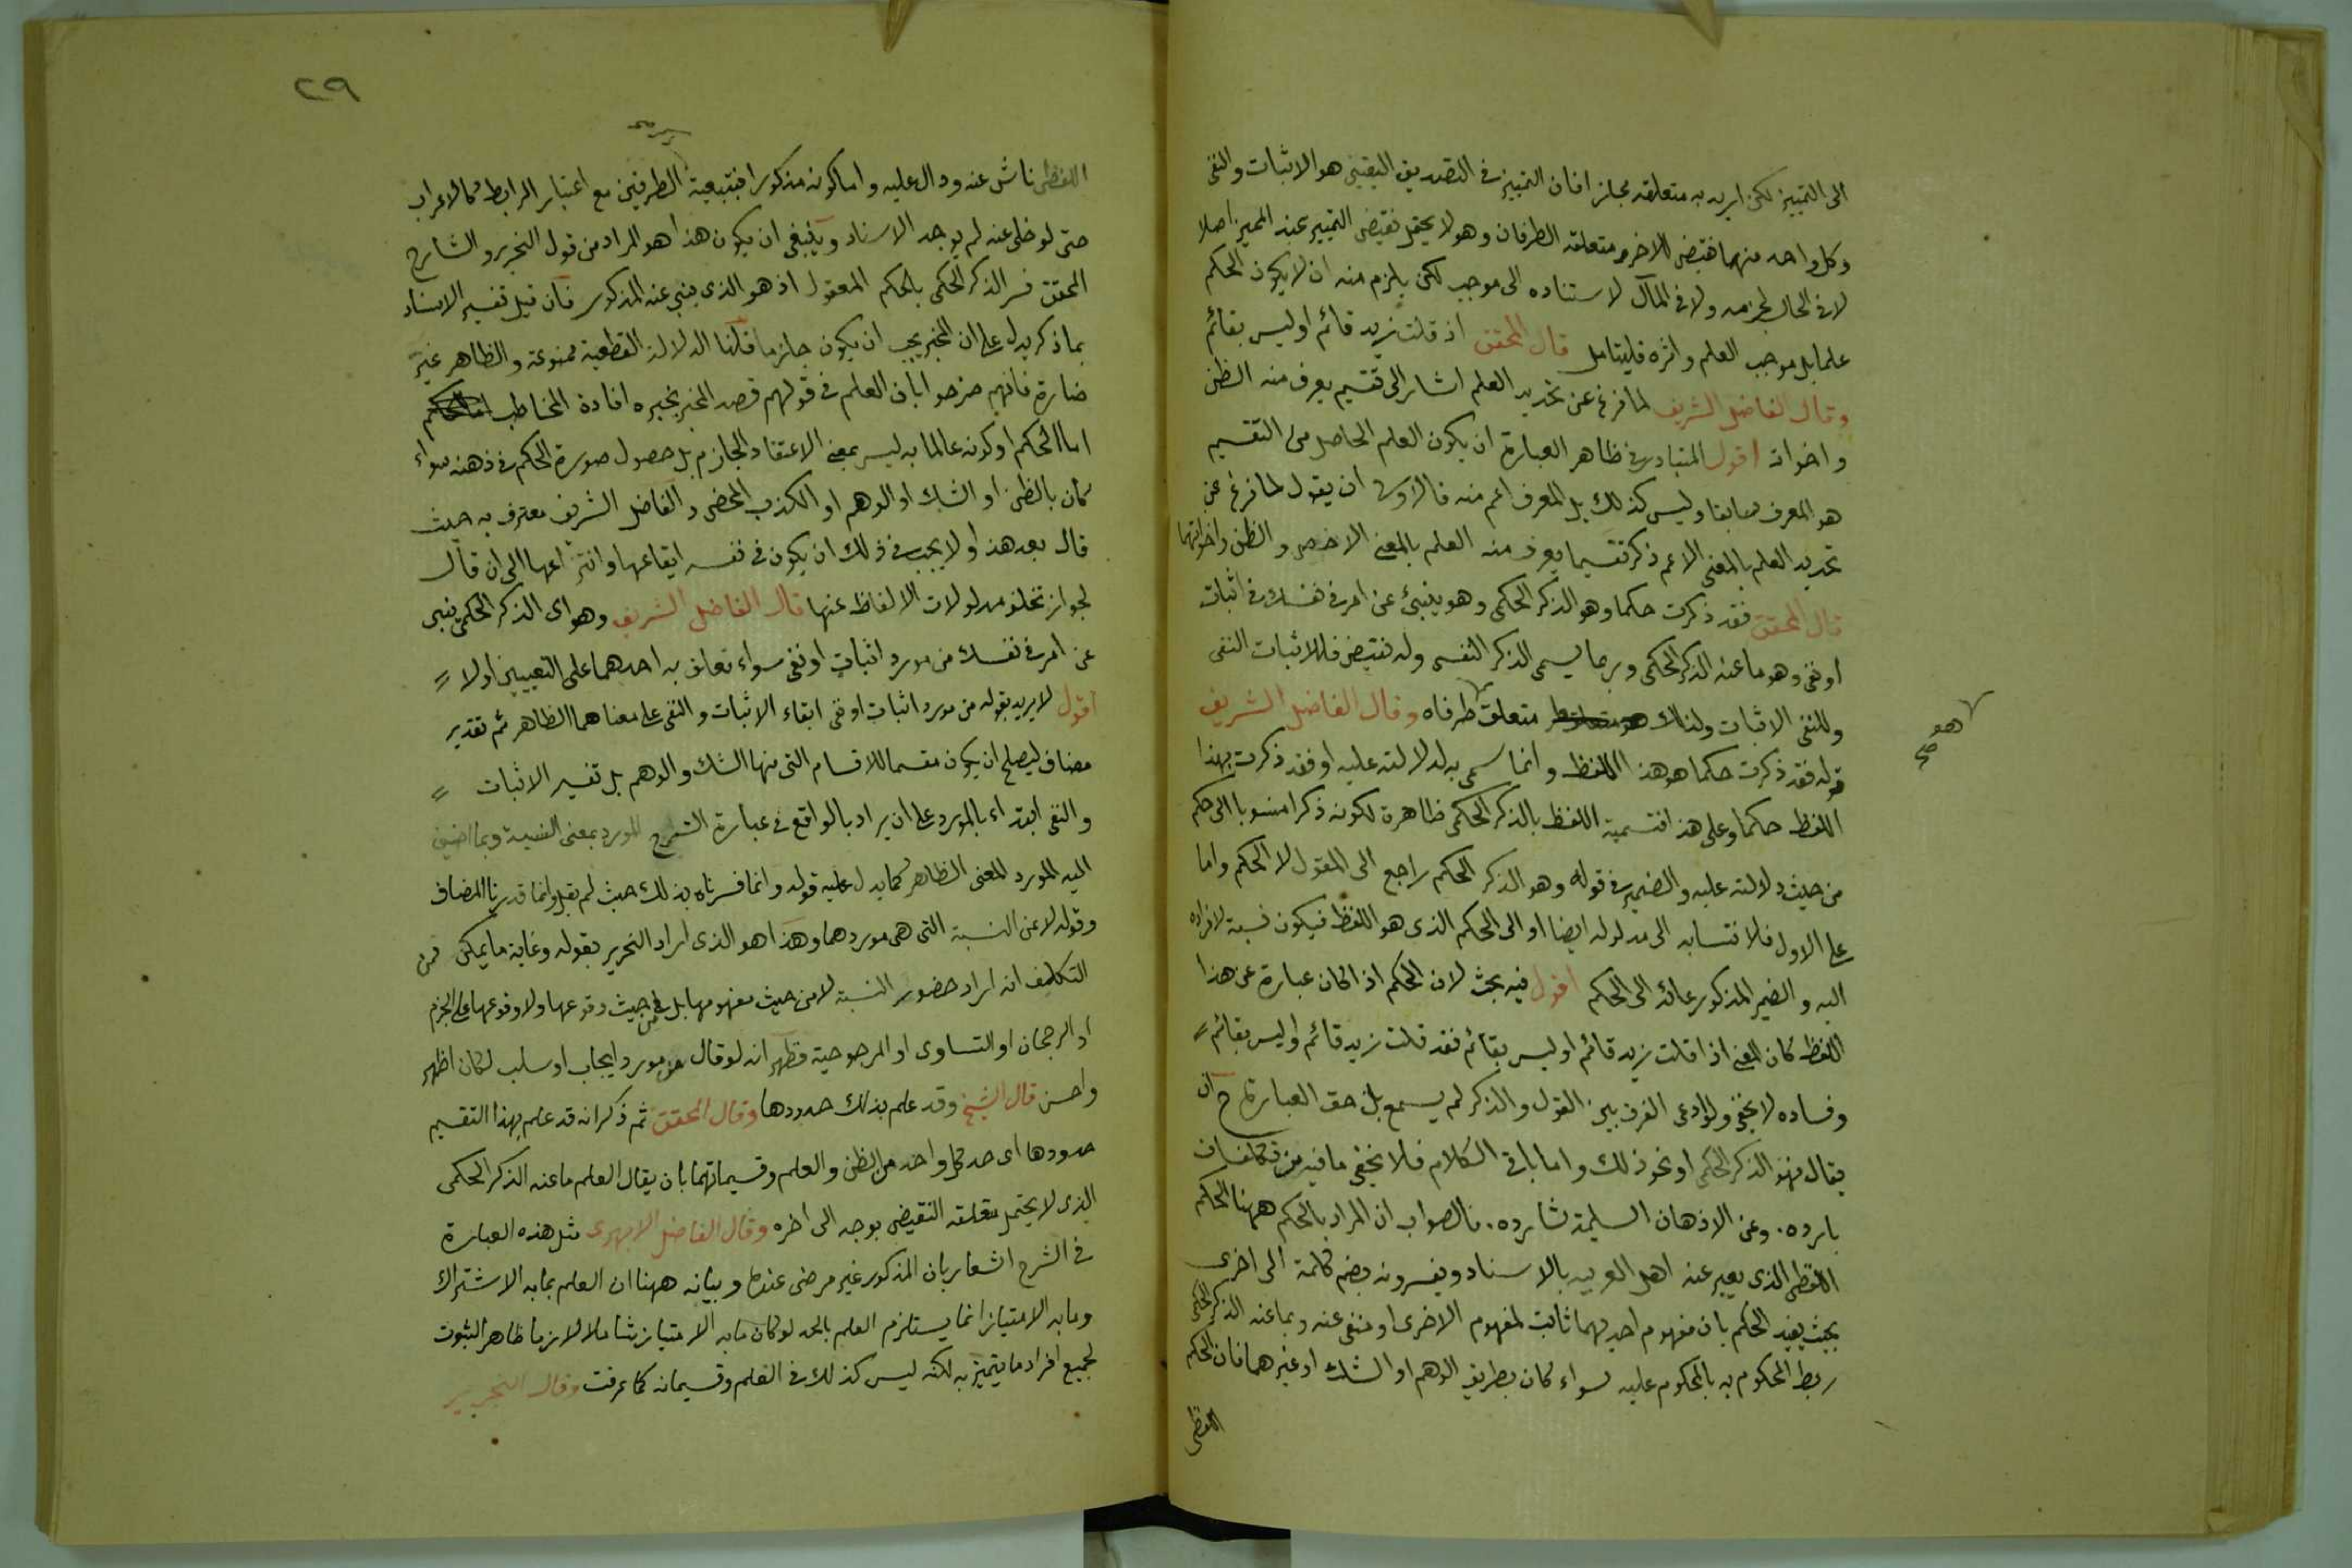 الى التمييز لكن اريد به متعلقه مجازا فان التمييز في التصديق اليقيني هو الاثبات والنفى
وكل واحد منهما نقيض للاخر ومتعلقه الطرفان وهو لا يحتمل نقيض التمييز عند المميز اصلا
لا في الحال لجزمه ولا في المآل لاستناده الى موجب لكن يلزم منه ان لا يكون الحكم
علما بل موجب العلم واثره فليتامل قال المحقق اذ قلت زيد قائم او ليس بقائم
وقال الفاضل الشريف لما فرغ عن تحديد العلم اشار الى تقسيم يعرف منه الظن
واخواته اقول المتبادر في ظاهر العبارة ان يكون العلم الحاصل من التقسيم
هو المعرف سابقا وليس كذلك بل المعرف اعم منه فالاولى ان يقول لما فرغ عن
تحديد العلم بالمعنى الاعم ذكر تقسيما يعرف منه العلم بالمعنى الاخص والظن واخواتهما
قال المحقق فقد ذكرت حكما وهو الذكر الحكمى وهو ينبئ عن امر في نفسك في اثبات
او نفى وهو ما عنه الذكر الحكمى وربما يسمى الذكر النفسى وله نقيض فللاثبات النفى
وللنفى الاثبات ولذلك متعلق طرفاه وقال الفاضل الشريف
هو صح
قوله فقد ذكرت حكما هو هذا اللفظ وانما سمى به لدلالته عليه او فقد ذكرت بهذا
اللفظ حكما وعلى هذا فتسمية اللفظ بالذكر الحكمى ظاهرة لكونه ذكرا منسوبا الى حكم
من حيث دلالته عليه والضمير في قوله وهو الذكر الحكم راجع الى المقول لا الحكم واما
على الاول فلانتسابه الى مدلوله ايضا او الى الحكم الذى هو اللفظ فيكون نسبة لافراده
اليه والضمير المذكور عائد الى الحكم اقول فيه بحث لان الحكم اذا كان عبارة عن هذا
اللفظ كان المعنى اذا قلت زيد قائم او ليس بقائم فقد قلت زيد قائم او ليس بقائم
وفساده لا يخفى ولو ادعى الفرق بين القول والذكر لم يسمع بل حق العبارة ح ان
يقال فهو الذكر الحكمى او نحو ذلك واما باقى الكلام فلا يخفى ما فيه من تكلفات
بارده. وعن الاذهان السليمة شارده. فالصواب ان المراد بالحكم ههنا الحكم
اللفظى الذى يعبر عنه اهل العربيه بالاسناد ويفسرونه بضم كلمة الى اخرى
بحيث يفيد الحكم بان مفهوم احديهما ثابت لمفهوم الاخرى او منفى عنه وبما عنه الذكر الحكمى
ربط المحكوم به بالمحكوم عليه سواء كان بطريق الوهم او الشك او غيرهما فان الحكم
اللفظى
٢٩
اللفظى ناش عنه ودال عليه واما كونه مذكورا فبتبعية الطرفين مع اعتبار الرابط كالاعراب
حتى لو خلى عنه لم يوجد الاسناد وينبغى ان يكون هذا هو المراد من قول النحرير والشارح
المحقق فسر الذكر الحكمى بالحكم المعقول اذ هو الذى ينبى عنه المذكور فان قيل تفسير الاسناد
بما ذكر يدل على ان المخبر يجب ان يكون جازما قلنا الدلالة القطعية ممنوعة والظاهر غير
ضارة فانهم صرحوا بان العلم في قولهم قصد المخبر بخبره افادة المخاطب
اما الحكم او كونه عالما به ليس بمعنى الاعتقاد الجازم بل حصول صورة الحكم في ذهنه سواء
كان بالظن او الشك او الوهم او الكذب المحض والفاضل الشريف معترف به حيث
قال بعد هذا ولا يجب في ذلك ان يكون في نفسه ايقاعها وانتزاعها الى ان قال
لجواز تخلف مدلولات الالفاظ عنها قال الفاضل الشريف وهو اى الذكر الحكمى ينبى
عن امر في نفسك من مورد اثبات او نفى سواء تعلق به احدهما على التعيين او لا
اقول لا يريد بقوله من مورد اثبات او نفى ابقاء الاثبات والنفى على معناهما الظاهر ثم تقدير
مضاف ليصلح ان يكون مقسما للاقسام التى منها الشك والوهم بل تفسير الاثبات
والنفى ابتداء بالمورد على ان يراد بالواقع في عبارة الشرح المورد بمعنى النسبة وبما اضيف
اليه المورد المعنى الظاهر كما يدل عليه قوله وانما فسرناه بذلك حيث لم يقل وانما قدرنا المضاف
وقوله لا عن النسبة التى هى موردهما وهذا هو الذى اراد النحرير بقوله وغاية ما يمكن من
التكلف انه اراد حضور النسبة لا من حيث مفهومها بل من حيث وقوعها ولا وقوعها على الجزم
او الرجحان او التساوى او المرجوحية فظهر انه لو قال من مورد ايجاب او سلب لكان اظهر
واحسن قال الشيخ وقد علم بذلك حدودها وقال المحقق ثم ذكر انه قد علم بهذا التقسيم
حدودها اى حد كل واحد من الظن والعلم وقسيماتهما بان يقال العلم ما عنه الذكر الحكمى
الذى لا يحتمل متعلقه النقيض بوجه الى اخره وقال الفاضل الابهرى مثل هذه العبارة
في الشرح اشعار بان المذكور غير مرضى عنده وبيانه ههنا ان العلم بما به الاشتراك
وما به الامتياز انما يستلزم العلم بالحد لو كان ما به الامتياز شاملا لازما ظاهر الثبوت
لجميع افراد ما يتميز به لكنه ليس كذلك في العلم وقسيماته كما عرفت وقال النحرير